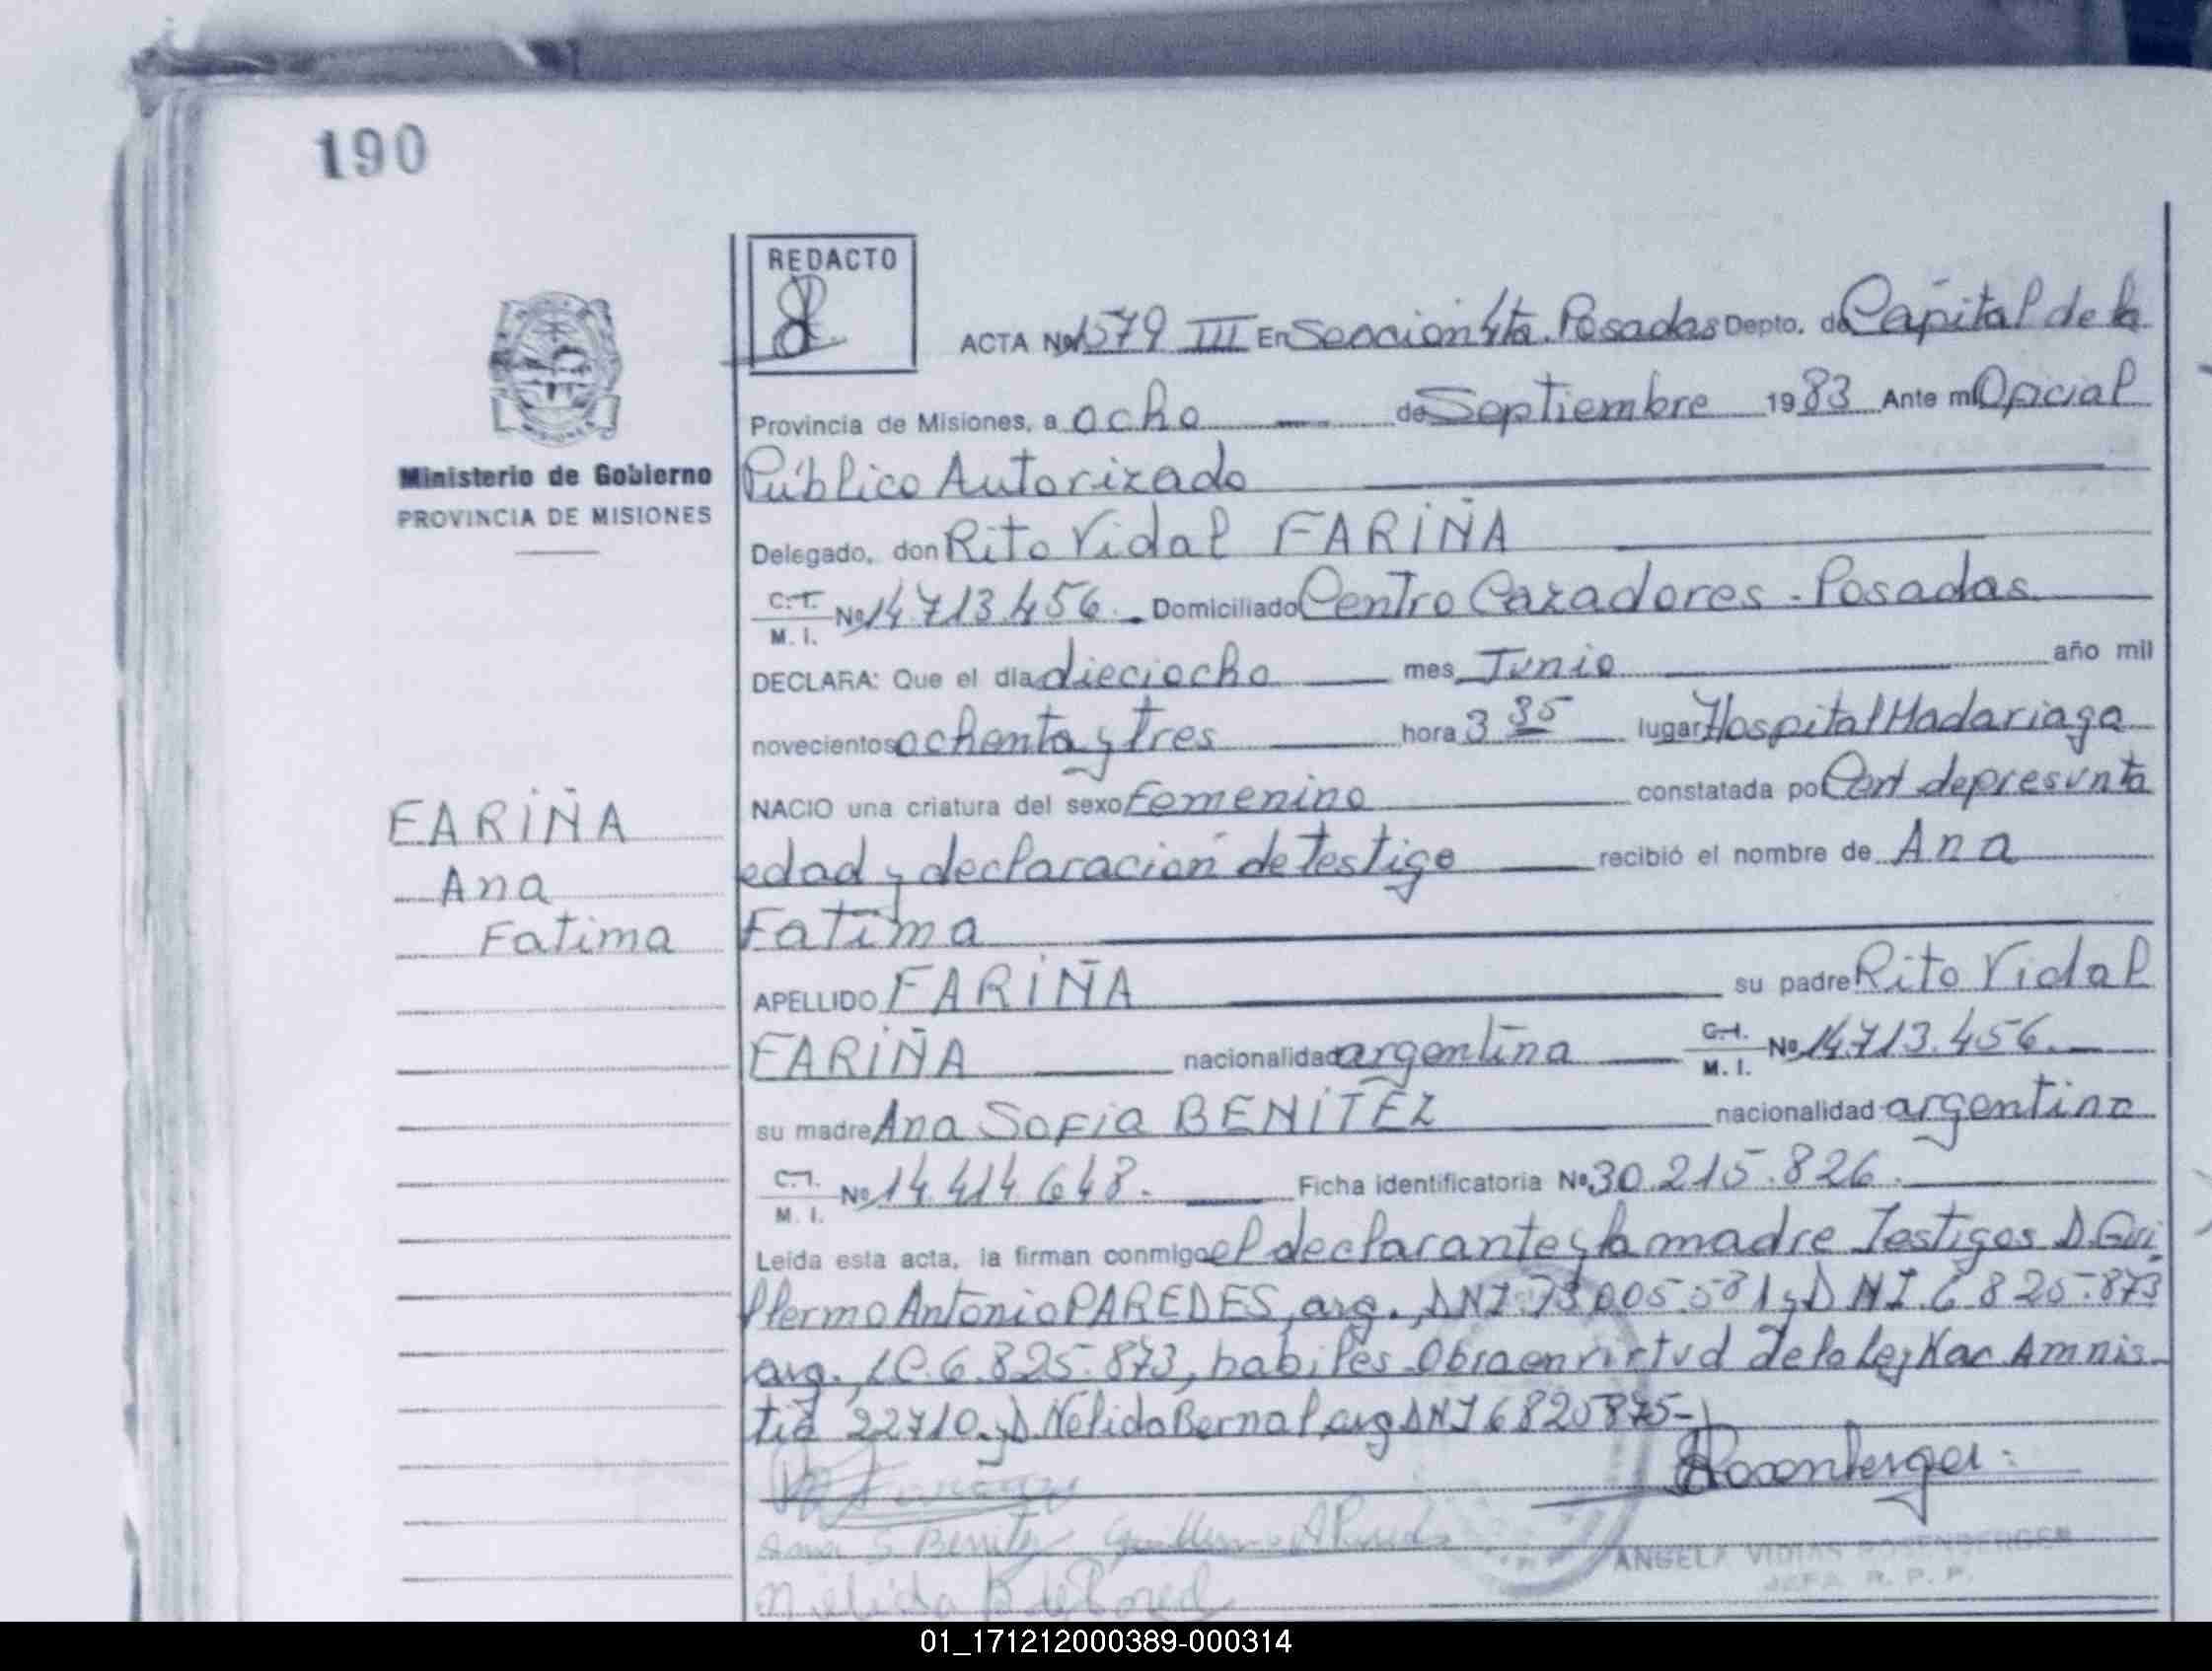 190
REDACTO
ACTA Nº 1579 III En Sección 4ta. Posadas Depto. de Capital de la
Provincia de Misiones, a ocho de Septiembre 1983 Ante mi Oficial
Ministerio de Gobierno
Público Autorizado
PROVINCIA DE MISIONES
Delegado, don Rito Vidal FARIÑA
C.I. M.I. Nº 14.713.456. Domiciliado Centro Cazadores - Posadas
DECLARA: Que el día dieciocho mes Junio año mil
novecientos ochenta y tres hora 3 35 lugar Hospital Madariaga
NACIO una criatura del sexo Femenino constatada po Cert de presunta
FARIÑA
edad y declaración de Testigo recibió el nombre de Ana
Ana
Fatima
Fatima
APELLIDO FARIÑA su padre Rito Vidal
FARIÑA nacionalidad argentina C.I. M.I. Nº 14.713.456.
su madre Ana Sofia BENÍTEZ nacionalidad argentina
C.I. M.I. Nº 14.414.648. Ficha identificatoria Nº 30.215.826.
Leída esta acta, la firman conmigo el declarante y la madre Testigos D. Gui
llermo Antonio PAREDES, arg., DNI. y D NI. 6 825.873
arg., LC. 6.825.873, habiles. Obra en virtud de la ley Nac Amnis
tia 22710. y D. Nelida Bernal arg DNI 6825875-
Rosenberger
Ana S Benitez Guillermo A Paredes
Nelida B de Pared
ANGELA ROSENBERGER
JEFA R. P. P.
01_171212000389-000314